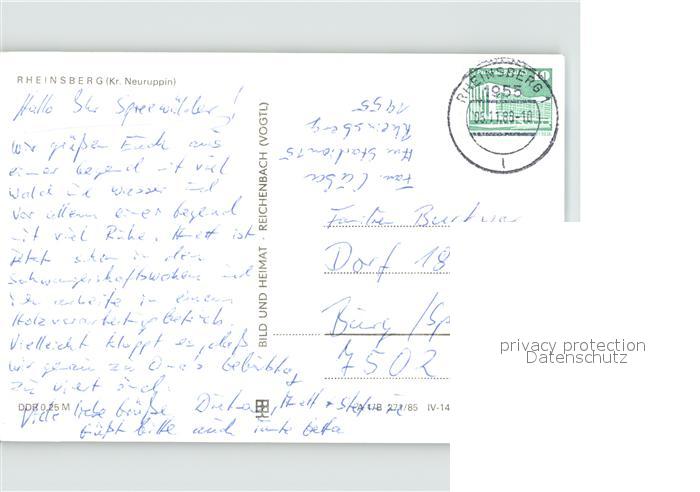 RHEINSBERG (Kr. Neuruppin)
Hallo Ihr Spreewälder!
Wir grüßen Euch aus
einer Gegend mit viel
Wald und Wasser und
vor allem einer Gegend
mit viel Ruhe. Anett ist
jetzt schon in den
Schwangerschaftswochen und
ich arbeite in einem
Holzverarbeitungsbetrieb.
Vielleicht klappt es, daß
wir genau zu Omas Geburtstag
zu viert sind.
Viele liebe Grüße Anett +
Grüßt bitte auch Tante
DDR 0,25 M
BILD UND HEIMAT · REICHENBACH (VOGTL)
A 1/B 271/85 IV-14
Fam.
Am Stadion 15
Rheinsberg
1955
RHEINSBERG 1
1955
10
Familien
Dorf 18
Burg /Sp
7502
privacy protection
Datenschutz